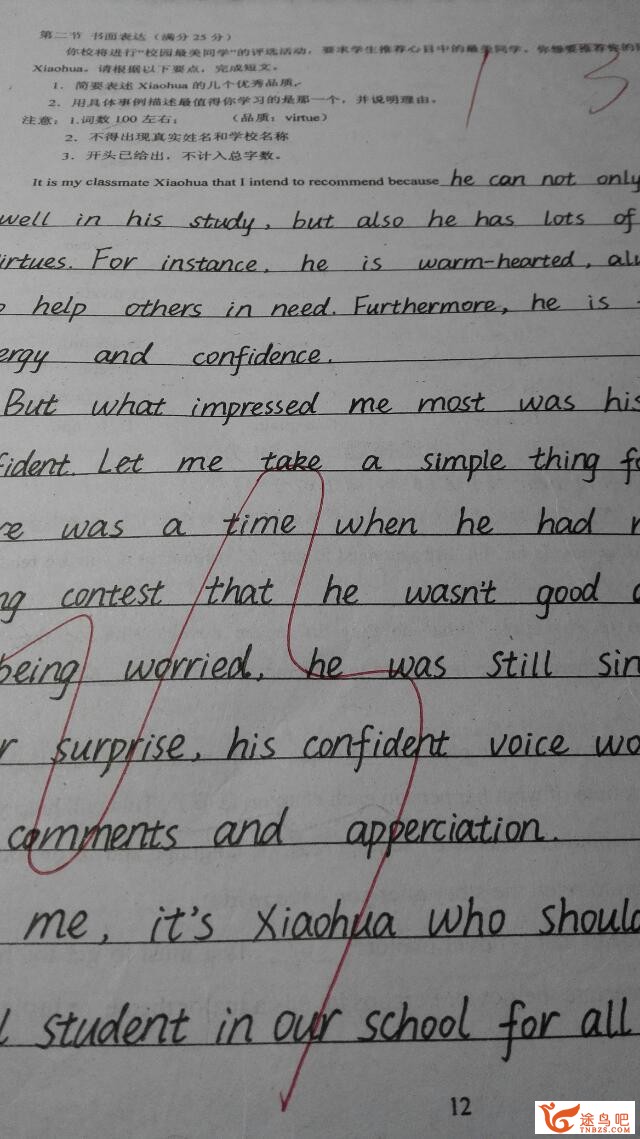 第二节 书面表达（满分25分）
你校将进行“校园最美同学”的评选活动，要求学生推荐心目中的最美同学。你想要推荐你的
Xiaohua。请根据以下要点，完成短文。
1. 简要表述 Xiaohua 的几个优秀品质。
2. 用具体事例描述最值得你学习的是那一个，并说明理由。
注意：1.词数 100 左右； （品质：virtue）
2. 不得出现真实姓名和学校名称
3. 开头已给出，不计入总字数。
13
It is my classmate Xiaohua that I intend to recommend because he can not only
well in his study, but also he has lots of
irtues. For instance, he is warm-hearted,
help others in need. Furthermore, he is
ergy and confidence.
But what impressed me most was his
fident. Let me take a simple thing
re was a time when he had
ng contest that he wasn't good
being worried, he was still sin
r surprise, his confident voice wo
comments and apperciation.
me, it's Xiaohua who should
l student in our school for all
12
途鸟吧
TNBZS.COM